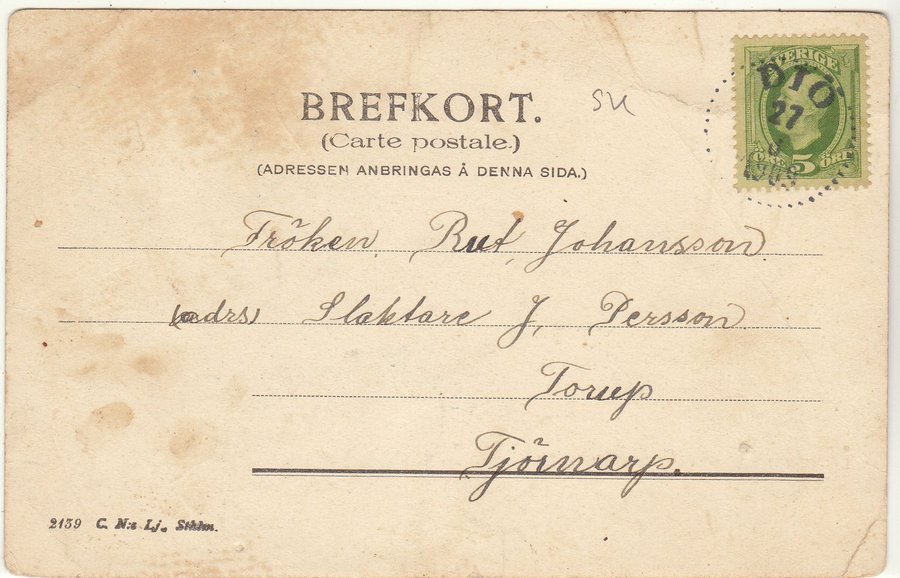 BREFKORT.
(Carte postale.)
(ADRESSEN ANBRINGAS Å DENNA SIDA.)
SVERIGE
DIÖ
27
ÖRE 5 ÖRE
Fröken, Rut, Johansson
(adrs) Slaktare J, Persson
Torup
Tjörnarp.
2139 C. N:s Lj., Sthlm.